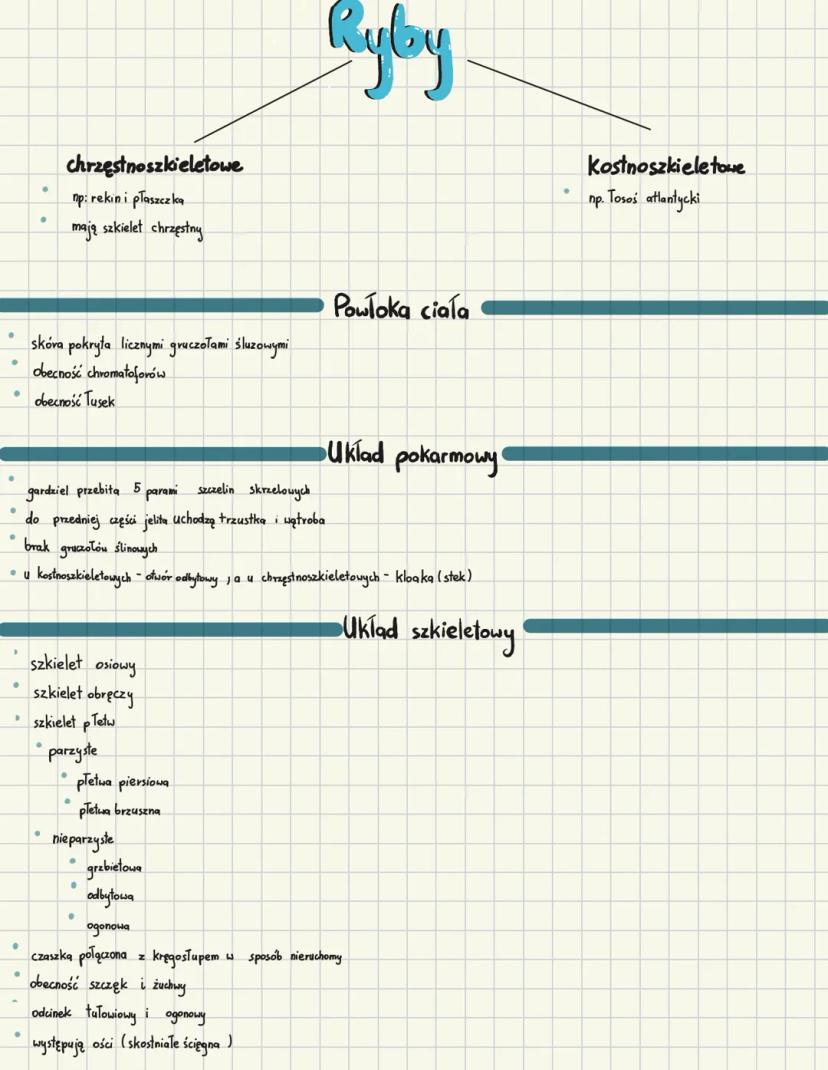 Ryby
chrzęstnoszkieletowe
np: rekin i płaszczka
mają szkielet chrzęstny
Kostnoszkieletowe
np. Łosoś atlantycki
Powłoka ciała
skóra pokryta licznymi gruczołami śluzowymi
obecność chromatoforów
obecność łusek
Układ pokarmowy
gardziel przebita 5 parami szczelin skrzelowych
do przedniej części jelita uchodzą trzustka i wątroba
brak gruczołów ślinowych
u kostnoszkieletowych - otwór odbytowy , a u chrzęstnoszkieletowych - kloaka (stek)
Układ szkieletowy
szkielet osiowy
szkielet obręczy
szkielet płetw
parzyste
płetwa piersiowa
płetwa brzuszna
nieparzyste
grzbietowa
odbytowa
ogonowa
czaszka połączona z kręgosłupem w sposób nieruchomy
obecność szczęk i żuchwy
odcinek tułowiowy i ogonowy
występują ości (skostniałe ścięgna )